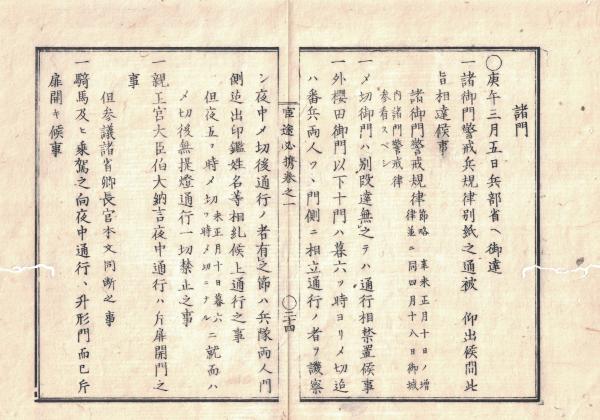 諸門
○庚午三月五日兵部省ヘ御達
一諸御門警戒兵規律別紙之通被 仰出候間此
旨相達候事
諸御門警戒規律 節略 辛未正月十日ノ増
律並ニ同四月十八日御城
内諸門警戒律
参看スベシ
一〆切御門ハ別段達無之テハ通行相禁置候事
一外櫻田御門以下十門ハ暮六ツ時ヨリ〆切迄
ハ番兵両人ツヽ門側ニ相立通行ノ者ヲ譏察
宦途必携巻之一
○二十四
ン夜中〆切後通行ノ者有之節ハ兵隊両人門
側迄出印鑑姓名等相糺候上通行之事
但夜五ツ時〆切 未正月十日暮六
ツ時〆切ニナル ニ就而ハ
〆切後無提燈通行一切禁止之事
一親王宮大臣伯大納言夜中通行ハ斤扉開門之
事
但参議諸省卿長官本文同断之事
一騎馬及ヒ乗駕之向夜中通行、升形門而已斤
扉開キ候事